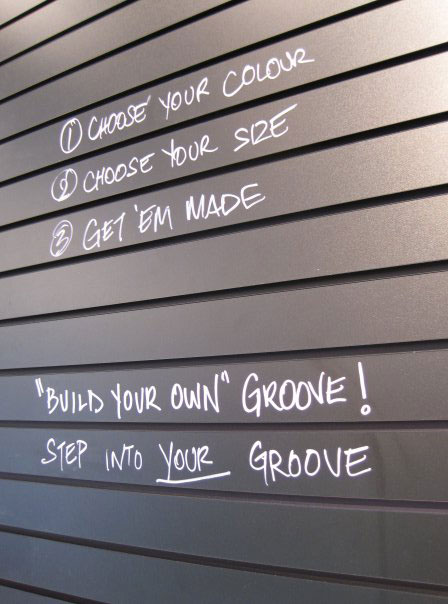 ① CHOOSE YOUR COLOUR
② CHOOSE YOUR SIZE
③ GET 'EM MADE
"BUILD YOUR OWN" GROOVE!
STEP INTO YOUR GROOVE